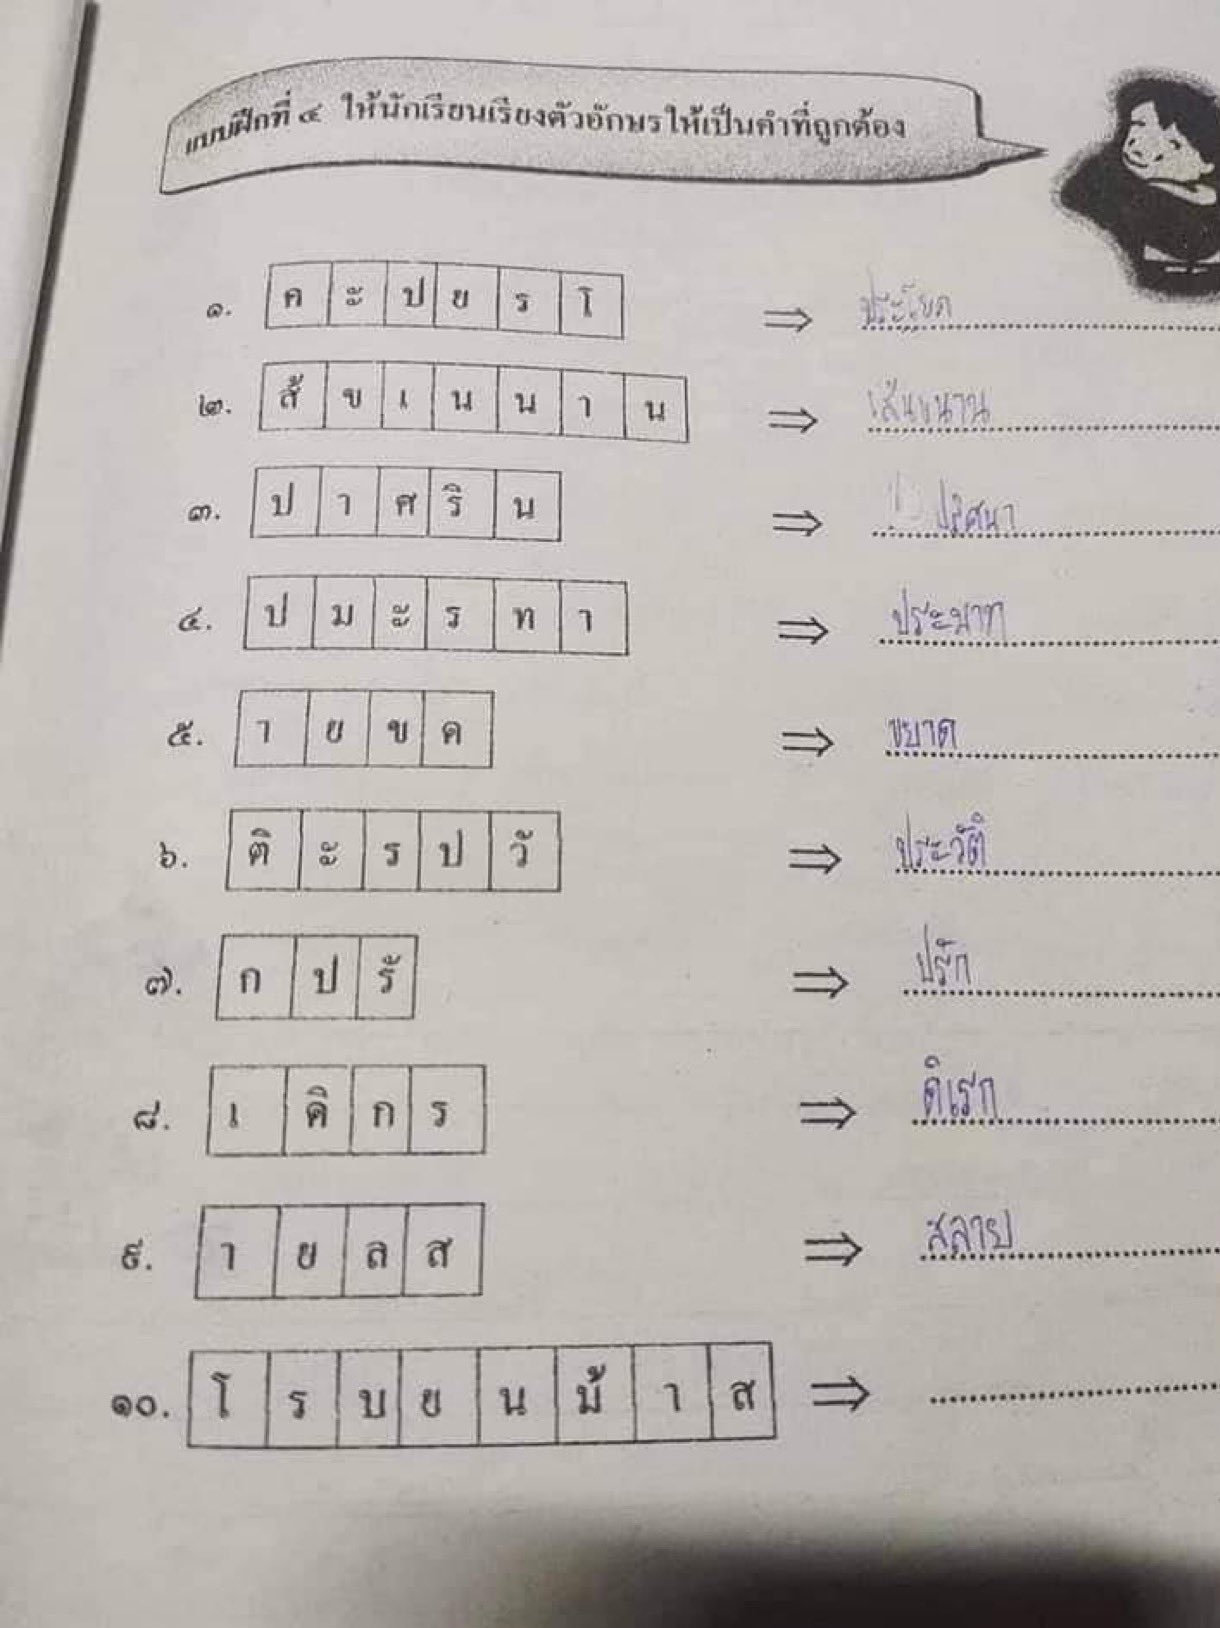 แบบฝึกที่ ๔ ให้นักเรียนเรียงตัวอักษรให้เป็นคำที่ถูกต้อง
๑. ค ะ ป ย ร โ ⇒ ประโยค
๒. ส้ ข เ น น า น ⇒ เส้นขนาน
๓. ป า ศ ริ น ⇒ ปริศนา
๔. ป ม ะ ร ท า ⇒ ประมาท
๕. า ย ข ด ⇒ ขยาด
๖. ติ ะ ร ป วั ⇒ ประวัติ
๗. ก ป รั ⇒ ปรัก
๘. เ ดิ ก ร ⇒ ดิเรก
๙. า ย ล ส ⇒ สลาย
๑๐. โ ร บ ย น ม้ า ส ⇒